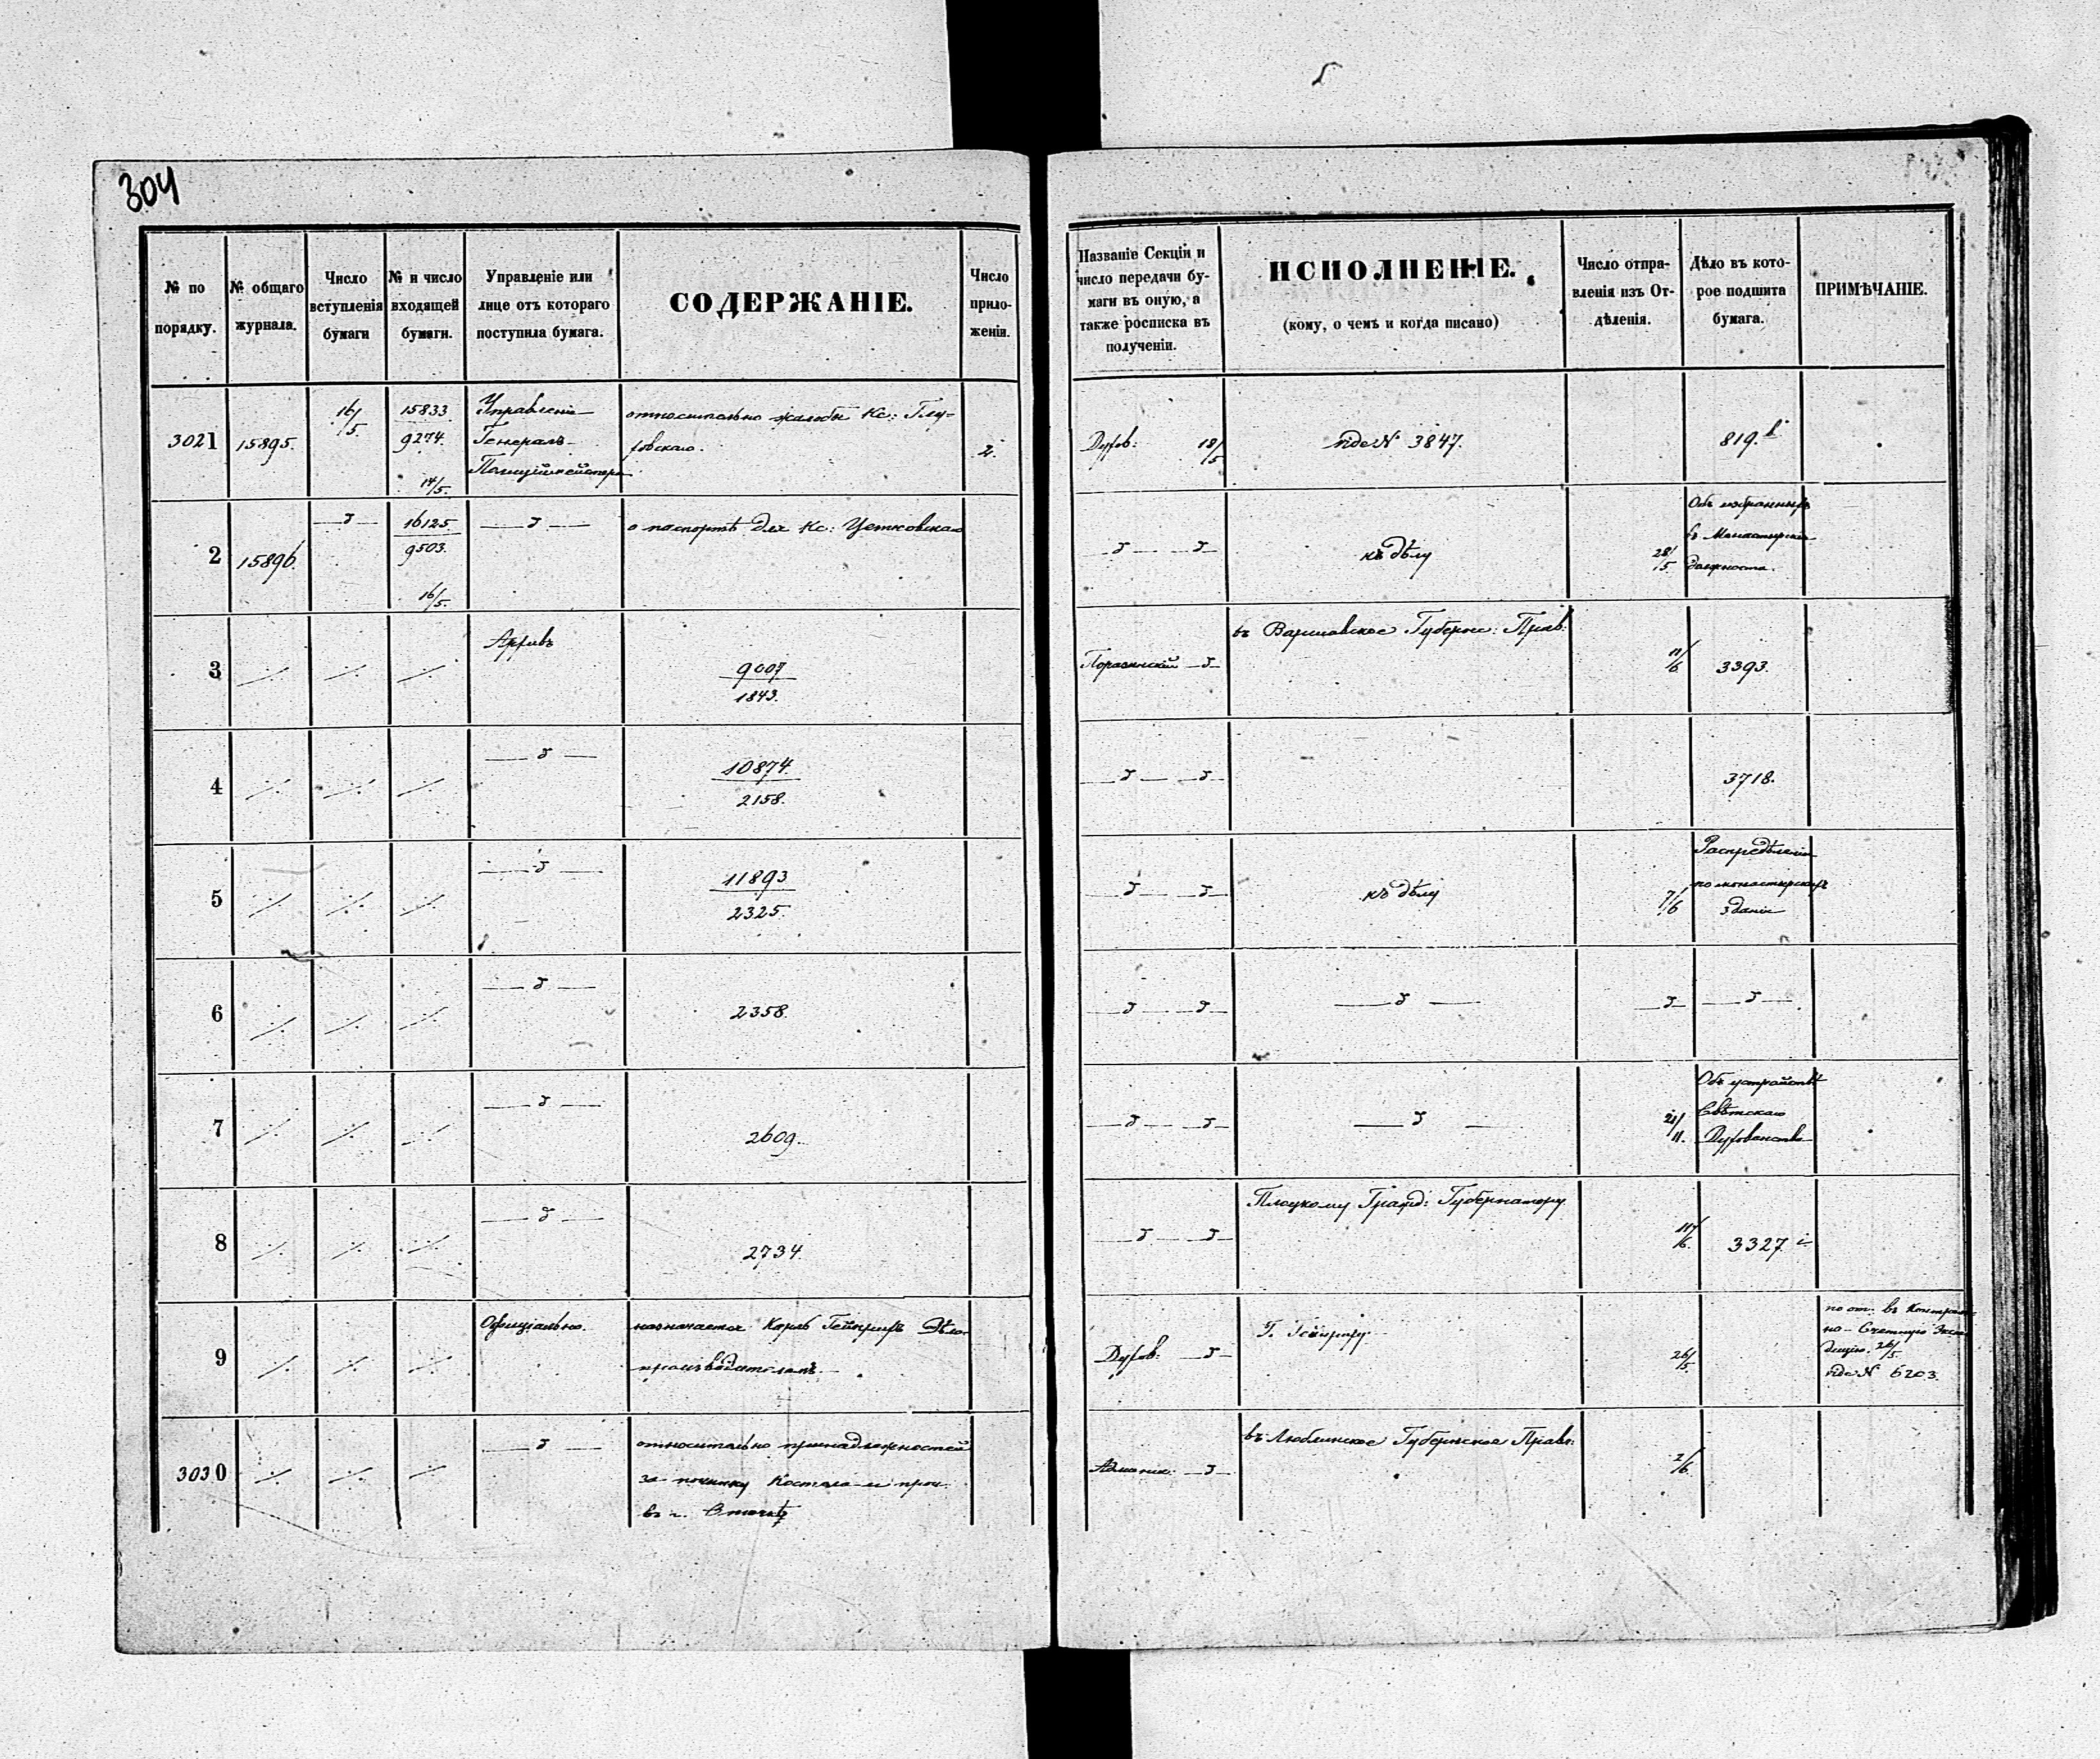 304
№ по порядку.
№ общаго журнала.
Число вступленія бумаги
№ и число входящей бумаги.
Управленіе или лице отъ котораго поступила бумага.
СОДЕРЖАНІЕ.
Число приложеніи.
Названіе Секціи и число передачи бумаги въ оную, а также росписка въ полученіи.
ИСПОЛНЕНІЕ.
(кому, о чемъ и когда писано)
Число отправленія изъ Отдѣленія.
Дѣло въ которое подшита бумага.
ПРИМѢЧАНІЕ.
3021 15895. 16/5. 15833. 9274. 14/5.
Управленіе
Генералъ
Полиціймейстера
относительно жалобы Кс:
2.
Духов: 18/5
vide № 3847.
819.
2 15896. 16125. 9503. 16/5.
о паспортѣ для Кс:
къ дѣлу
28/5
Объ избранныхъ
въ
должности.
3
Архивъ
9007
1843.
въ Варшавское Губернс: Прав:
11/6
3393.
4
10874.
2158.
3718.
5
11893
2325.
къ дѣлу
7/6
Распредѣленіе
по монастырскихъ
зданіи
6
2358.
7
2609.
21/11.
Объ устройствѣ
Свѣтскаго
Духовенства
8
2734.
Плоцкому Гражд: Губернатору
3327
9
Официально.
назначается Карлъ Гейнрихъ Дѣло-
производителемъ.
Духов:
Г. Гейнриху
26/5.
по от. въ Контроль
но - Счетную Экспе
дицію. 26/5.
vide № 6203.
3030
относительно принадлежностей
за починку Костела и проч.
въ г.
въ Люблинское Губернское Правл:
2/6.